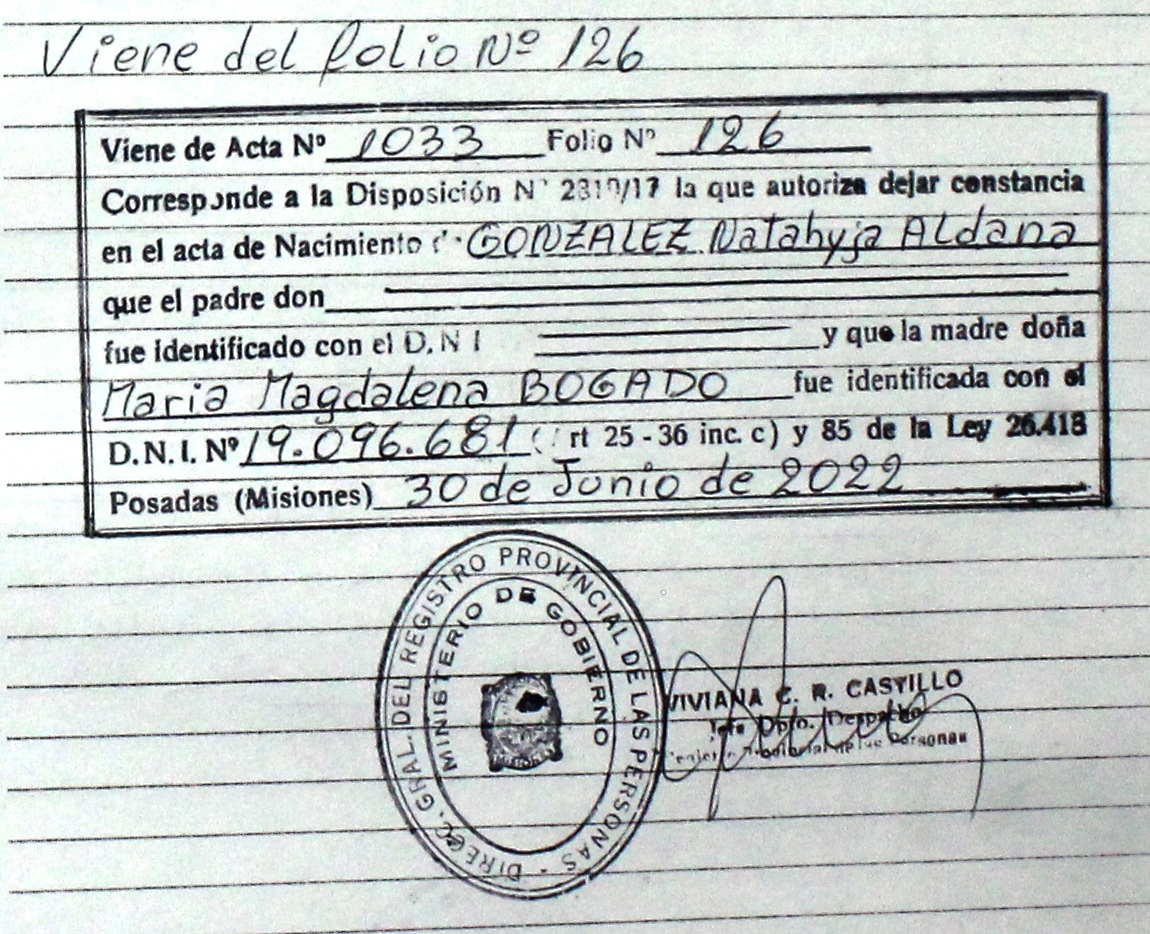 Viene del folio Nº 126
Viene de Acta Nº 1033 Folio Nº 126
Corresponde a la Disposición Nº 2310/17 la que autoriza dejar constancia
en el acta de Nacimiento GONZALEZ Natahyja Aldana
que el padre don
fue identificado con el D.N I y que la madre doña
Maria Magdalena BOGADO fue identificada con el
D.N.I. Nº 19.096.681 ( rt 25 - 36 inc. c) y 85 de la Ley 26.413
Posadas (Misiones) 30 de Junio de 2022
DIREC. GRAL. DEL REGISTRO PROVINCIAL DE LAS PERSONAS
MINISTERIO DE GOBIERNO
VIVIANA C. R. CASTILLO
Jefe Dpto. Despacho
Provincial de las Personas